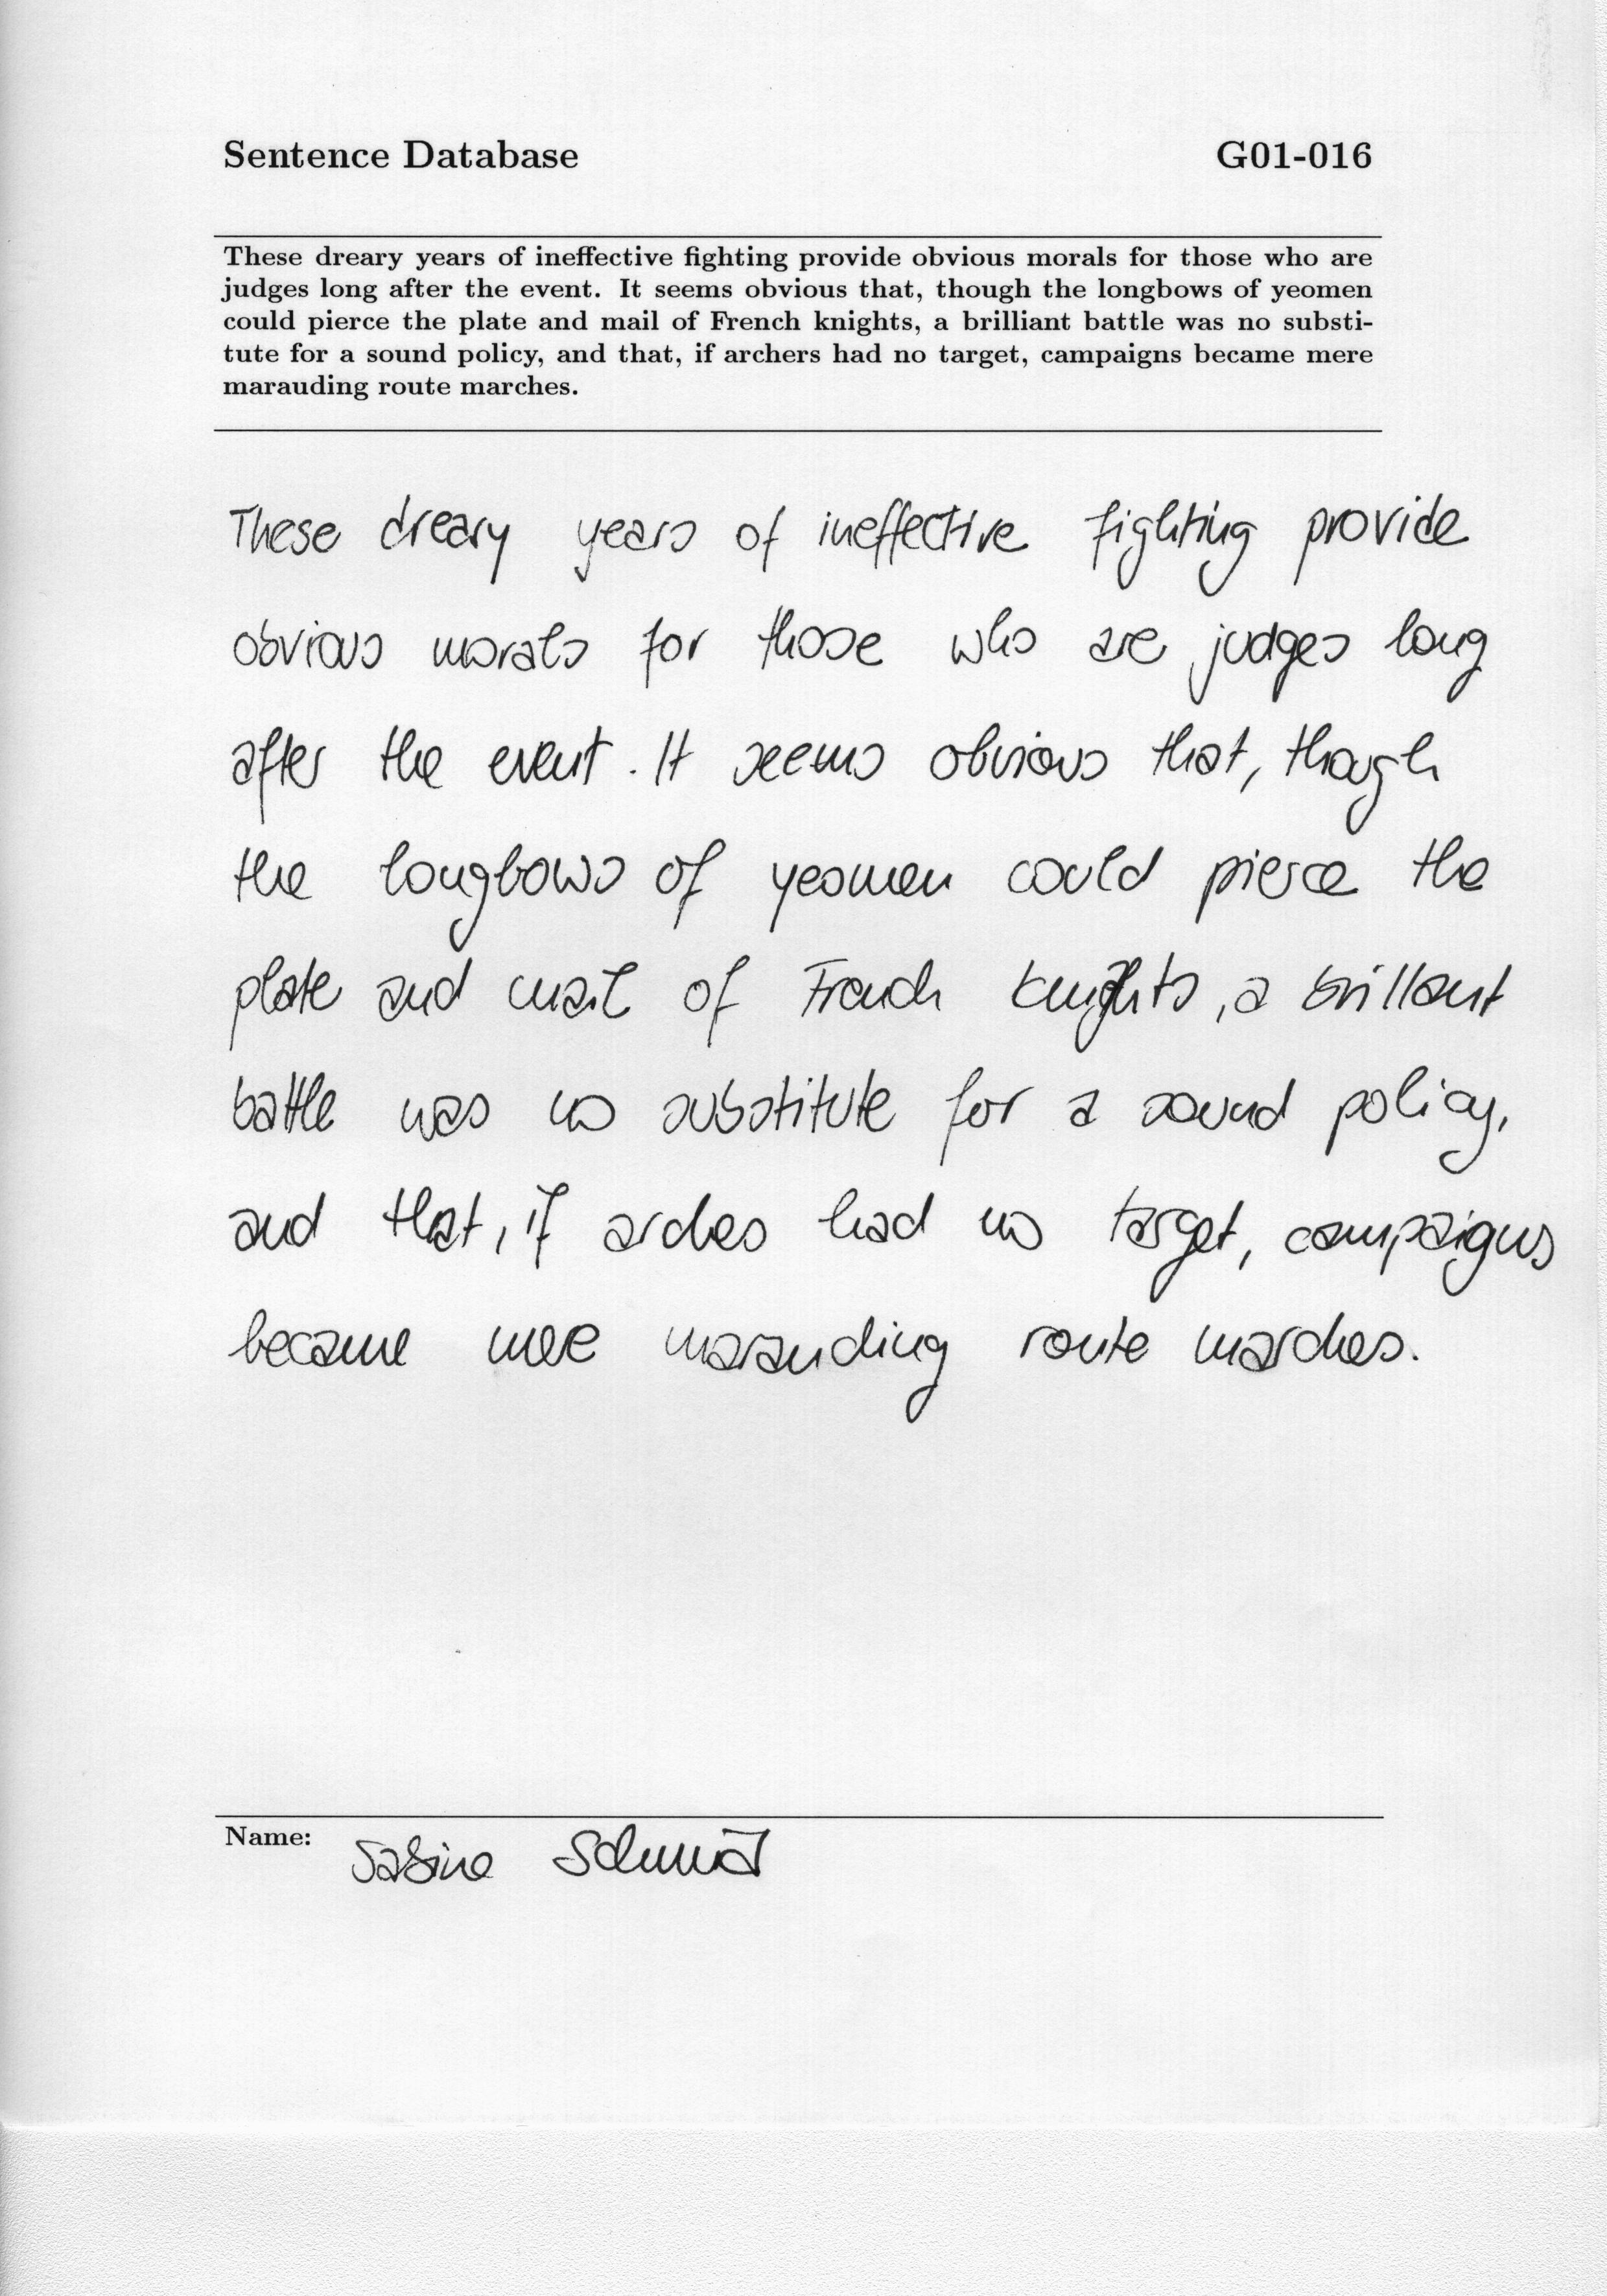 Sentence Database G01-016
These dreary years of ineffective fighting provide obvious morals for those who are
judges long after the event. It seems obvious that, though the longbows of yeomen
could pierce the plate and mail of French knights, a brilliant battle was no substi-
tute for a sound policy, and that, if archers had no target, campaigns became mere
marauding route marches.
These dreary years of ineffective fighting provide
obvious morals for those who are judges long
after the event. It seems obvious that, though
the longbows of yeomen could pierce the
plate and mail of French knights, a brillant
battle was no substitute for a sound policy,
and that, if arches had no target, campaigns
became mere marauding route marches.
Name: Sabine Schmid